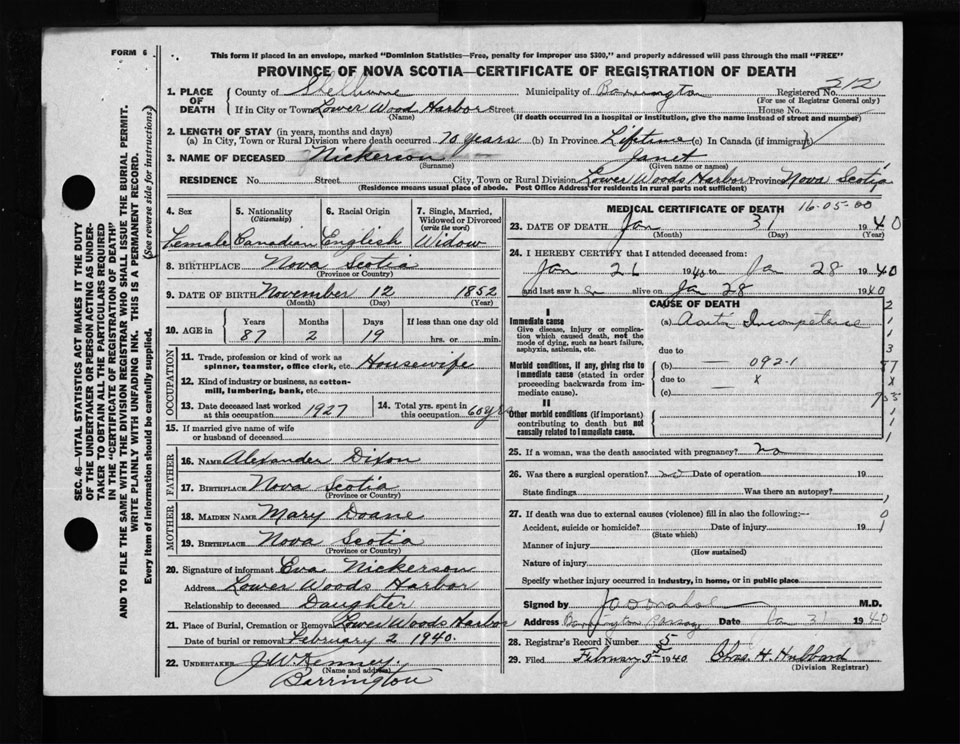 FORM 6
This form if placed in an envelope, marked "Dominion Statistics—Free, penalty for improper use $300," and properly addressed will pass through the mail "FREE"
PROVINCE OF NOVA SCOTIA—CERTIFICATE OF REGISTRATION OF DEATH
SEC. 46—VITAL STATISTICS ACT MAKES IT THE DUTY
OF THE UNDERTAKER OR PERSON ACTING AS UNDER-
TAKER TO OBTAIN ALL THE PARTICULARS REQUIRED
IN THE "CERTIFICATE OF REGISTRATION OF DEATH"
AND TO FILE THE SAME WITH THE DIVISION REGISTRAR WHO SHALL ISSUE THE BURIAL PERMIT.
WRITE PLAINLY WITH UNFADING INK. THIS IS A PERMANENT RECORD.
Every item of information should be carefully supplied. (See reverse side for instructions)
1. PLACE OF DEATH
County of Shelburne Municipality of Barrington Registered No. 512
(For use of Registrar General only)
If in City or Town Lower Wood Harbor Street House No.
(Name) (If death occurred in a hospital or institution, give the name instead of street and number)
2. LENGTH OF STAY (in years, months and days)
(a) In City, Town or Rural Division where death occurred 70 years (b) In Province Liftime (c) In Canada (if immigrant)
3. NAME OF DECEASED Nickerson Janet
(Surname) (Given name or names)
RESIDENCE No. Street City, Town or Rural Division Lower Woods Harbor Province Nova Scotia
(Residence means usual place of abode. Post Office Address for residents in rural parts not sufficient)
4. Sex
Female
5. Nationality
(Citizenship)
Canadian
6. Racial Origin
English
7. Single, Married, Widowed or Divorced
(write the word)
Widow
8. BIRTHPLACE Nova Scotia
(Province or Country)
9. DATE OF BIRTH November 12 1852
(Month) (Day) (Year)
10. AGE in Years Months Days If less than one day old
87 2 19 hrs. or min.
OCCUPATION
11. Trade, profession or kind of work as
spinner, teamster, office clerk, etc. Housewife
12. Kind of industry or business, as cotton-
mill, lumbering, bank, etc.
13. Date deceased last worked
at this occupation 1927
14. Total yrs. spent in
this occupation 60 yrs
15. If married give name of wife
or husband of deceased
FATHER
16. NAME Alexander Dixon
17. BIRTHPLACE Nova Scotia
(Province or Country)
MOTHER
18. MAIDEN NAME Mary Doane
19. BIRTHPLACE Nova Scotia
(Province or Country)
20. Signature of informant Eva Nickerson
Address Lower Woods Harbor
Relationship to deceased Daughter
21. Place of Burial, Cremation or Removal Lower Woods Harbor
Date of burial or removal February 2 1940
22. UNDERTAKER J W Kenney
(Name and address)
Barrington
MEDICAL CERTIFICATE OF DEATH 16-05-00
23. DATE OF DEATH Jan 31 1940
(Month) (Day) (Year)
24. I HEREBY CERTIFY that I attended deceased from:
Jan 26 1940 to Jan 28 1940
and last saw h er alive on Jan 28 1940
CAUSE OF DEATH
I
Immediate cause
Give disease, injury or complica-
tion which caused death, not the
mode of dying, such as heart failure,
asphyxia, asthenia, etc.
(a) Aortic Incompetence
due to
Morbid conditions, if any, giving rise to
immediate cause (stated in order
proceeding backwards from im-
mediate cause).
(b) 092-1
due to x
(c)
II
Other morbid conditions (if important)
contributing to death but not
causally related to immediate cause.
25. If a woman, was the death associated with pregnancy? no
26. Was there a surgical operation? no Date of operation 19
State findings Was there an autopsy?
27. If death was due to external causes (violence) fill in also the following:—
Accident, suicide or homicide? Date of injury 19
(State which)
Manner of injury
(How sustained)
Nature of injury
Specify whether injury occurred in industry, in home, or in public place
Signed by M.D.
Address Barrington Passage Date Jan 31 1940
28. Registrar's Record Number 5
29. Filed February 3rd 1940 Chas. H. Hubbard
(Division Registrar)